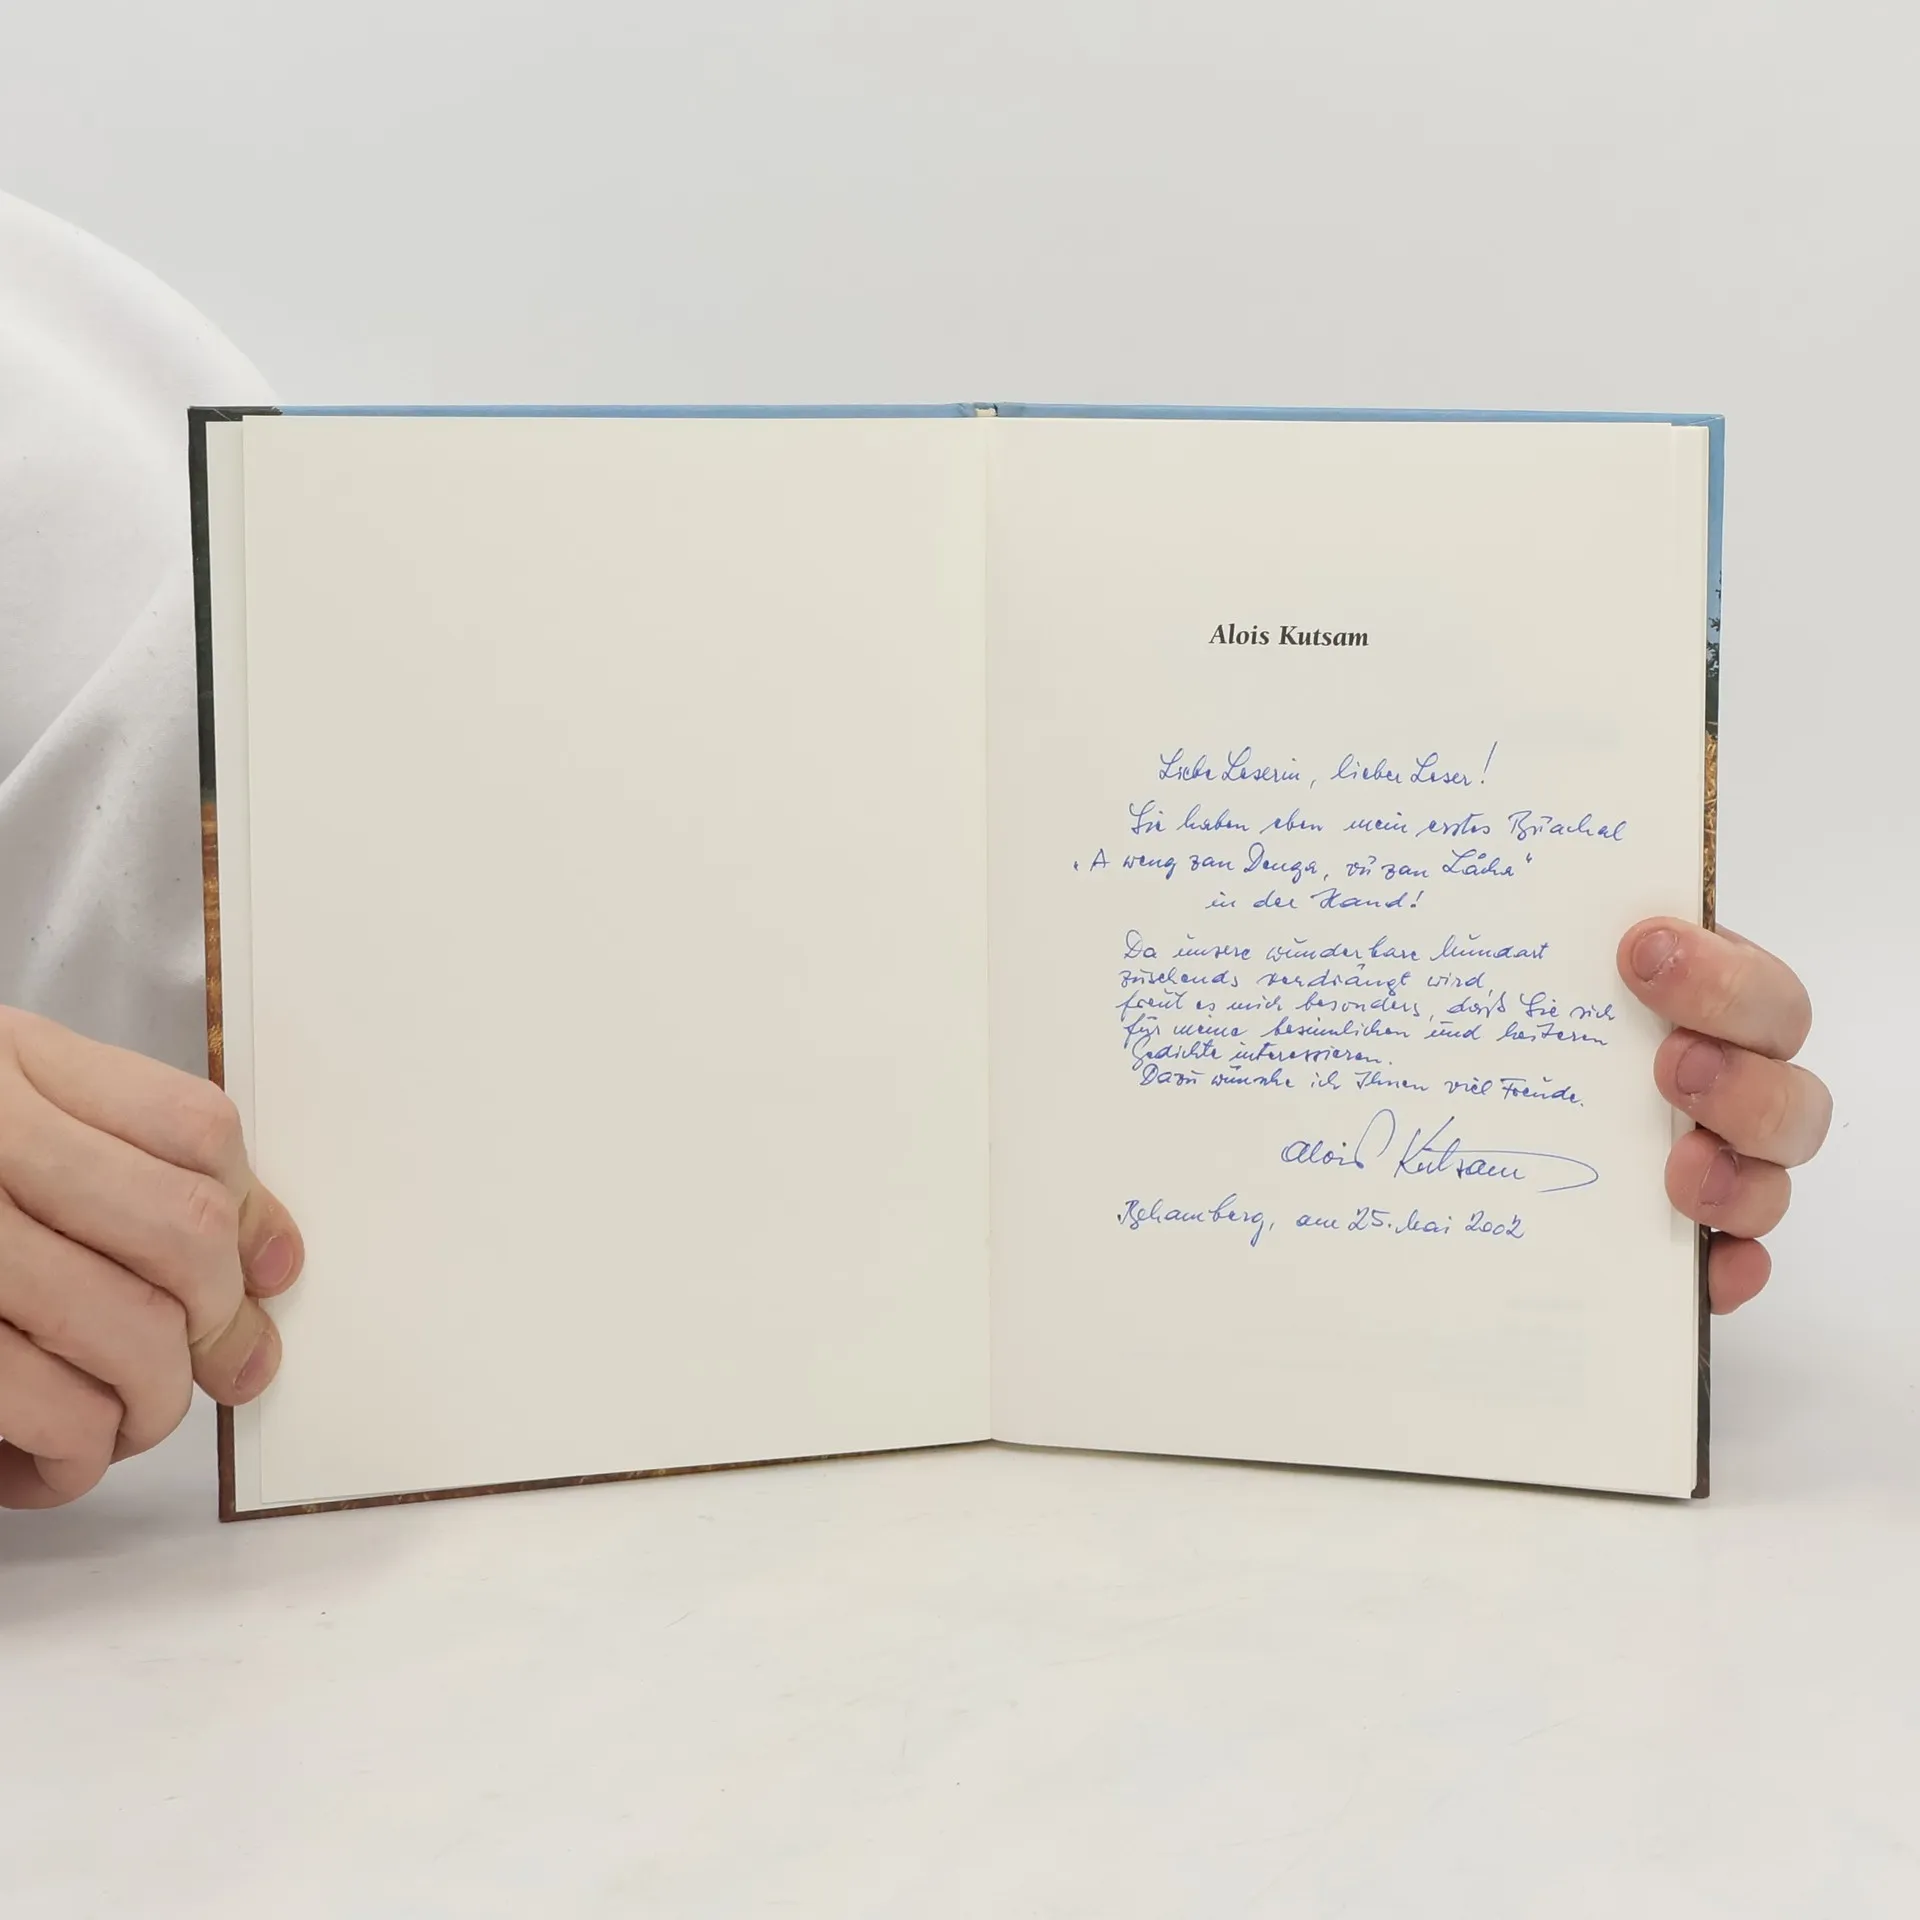 Alois Kutsam
Liebe Leserin, lieber Leser!
Sie haben eben mein erstes Büachal
„A weng zan Denga, vü zan Låcha“
in der Hand!
Da unsere wunderbare Mundart
zusehends verdrängt wird,
freut es mich besonders, daß Sie sich
für meine besinnlichen und heiteren
Gedichte interessieren.
Dazu wünsche ich Ihnen viel Freude.
Alois Kutsam
Behamberg, am 25. Mai 2002